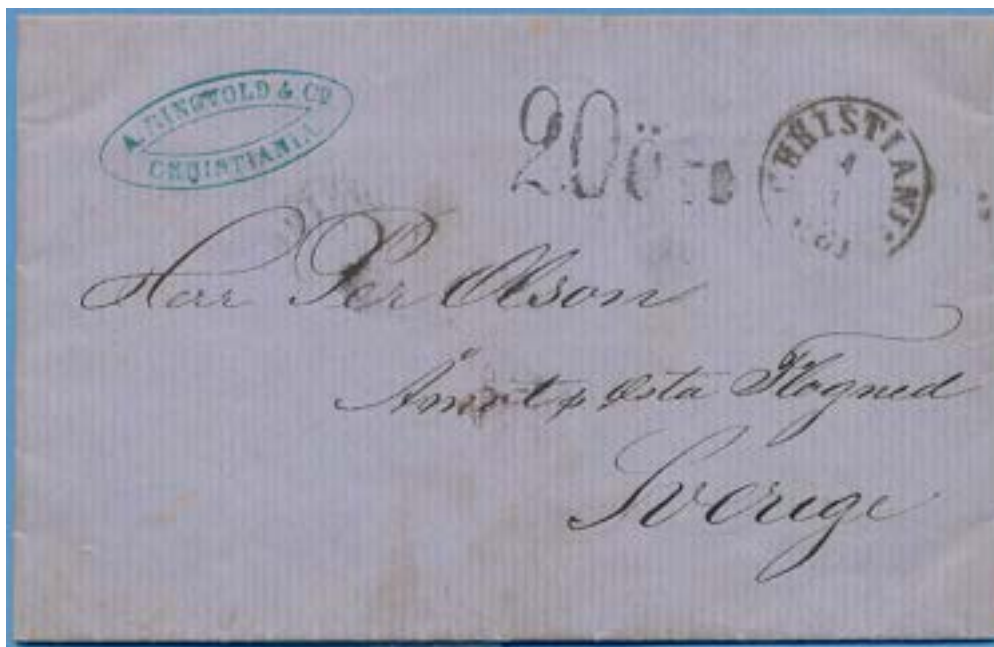 A. RINGVOLD & CO
CHRISTIANIA
20 öre
CHRISTIANIA
4
Herr Per Olson
Åmot Østa Flogned
Sverige